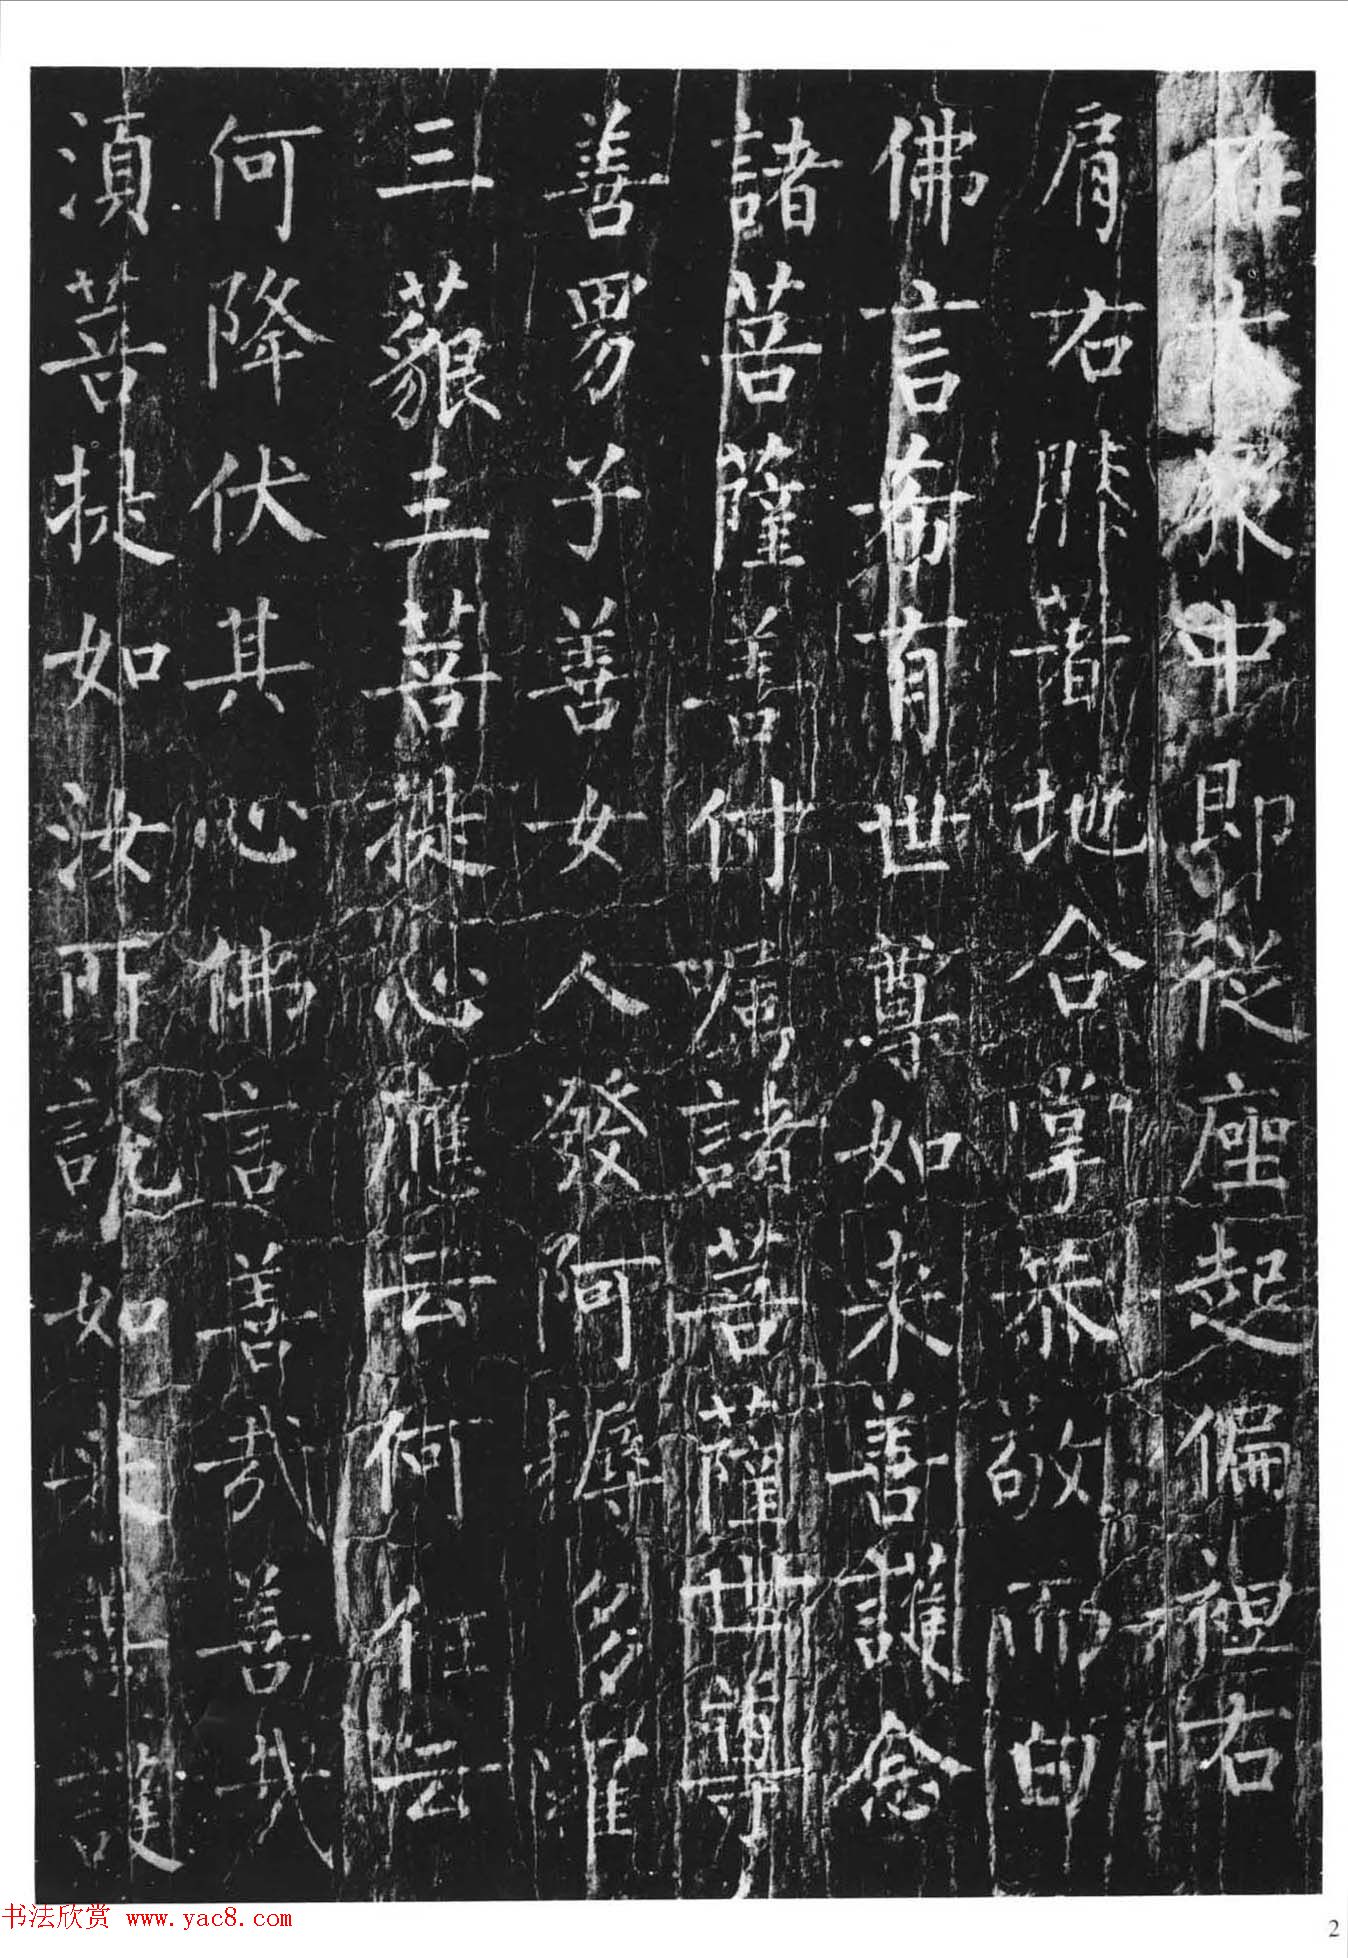 在大眾中即從座起偏袒右
肩右膝著地合掌恭敬而白
佛言希有世尊如来善護念
諸菩薩善付嘱諸菩薩世尊
善男子善女人發阿耨多羅
三藐三菩提心應云何住云
何降伏其心佛言善哉善哉
湏菩提如汝所說如来善護
书法欣赏 www.yac8.com
2